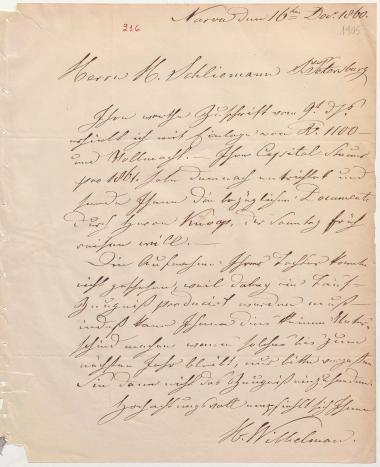 Narva den 16ten Dec. 1860.
216
1905
Herrn H. Schliemann St Petersburg
Ihre werthe Zuschrift vom 9t d/s
erhielt ich mit Einlage von Rs. 1100
und Vollmacht. – Ihre Capital Steuer
pro 1861. habe demnach entrichtet und
sende Ihnen die bezüglichen Documente
durch Herrn Knoop, der Sonntag früh
reisen will. –
Die Aufnahme Ihrer Tochter konnte
nicht geschehen, weil dabey ein Tauf-
Zeugniß producirt werden muß –
indeß kann Ihnen dies keinen Unter-
schied machen wenn solches bis zum
nächsten Jahr bleibt, nur bitte vergessen
Sie dann nicht das Zeugniß einzusenden.
Hochachtungsvoll empfiehlt sich Ihnen
H. Wilhelman.